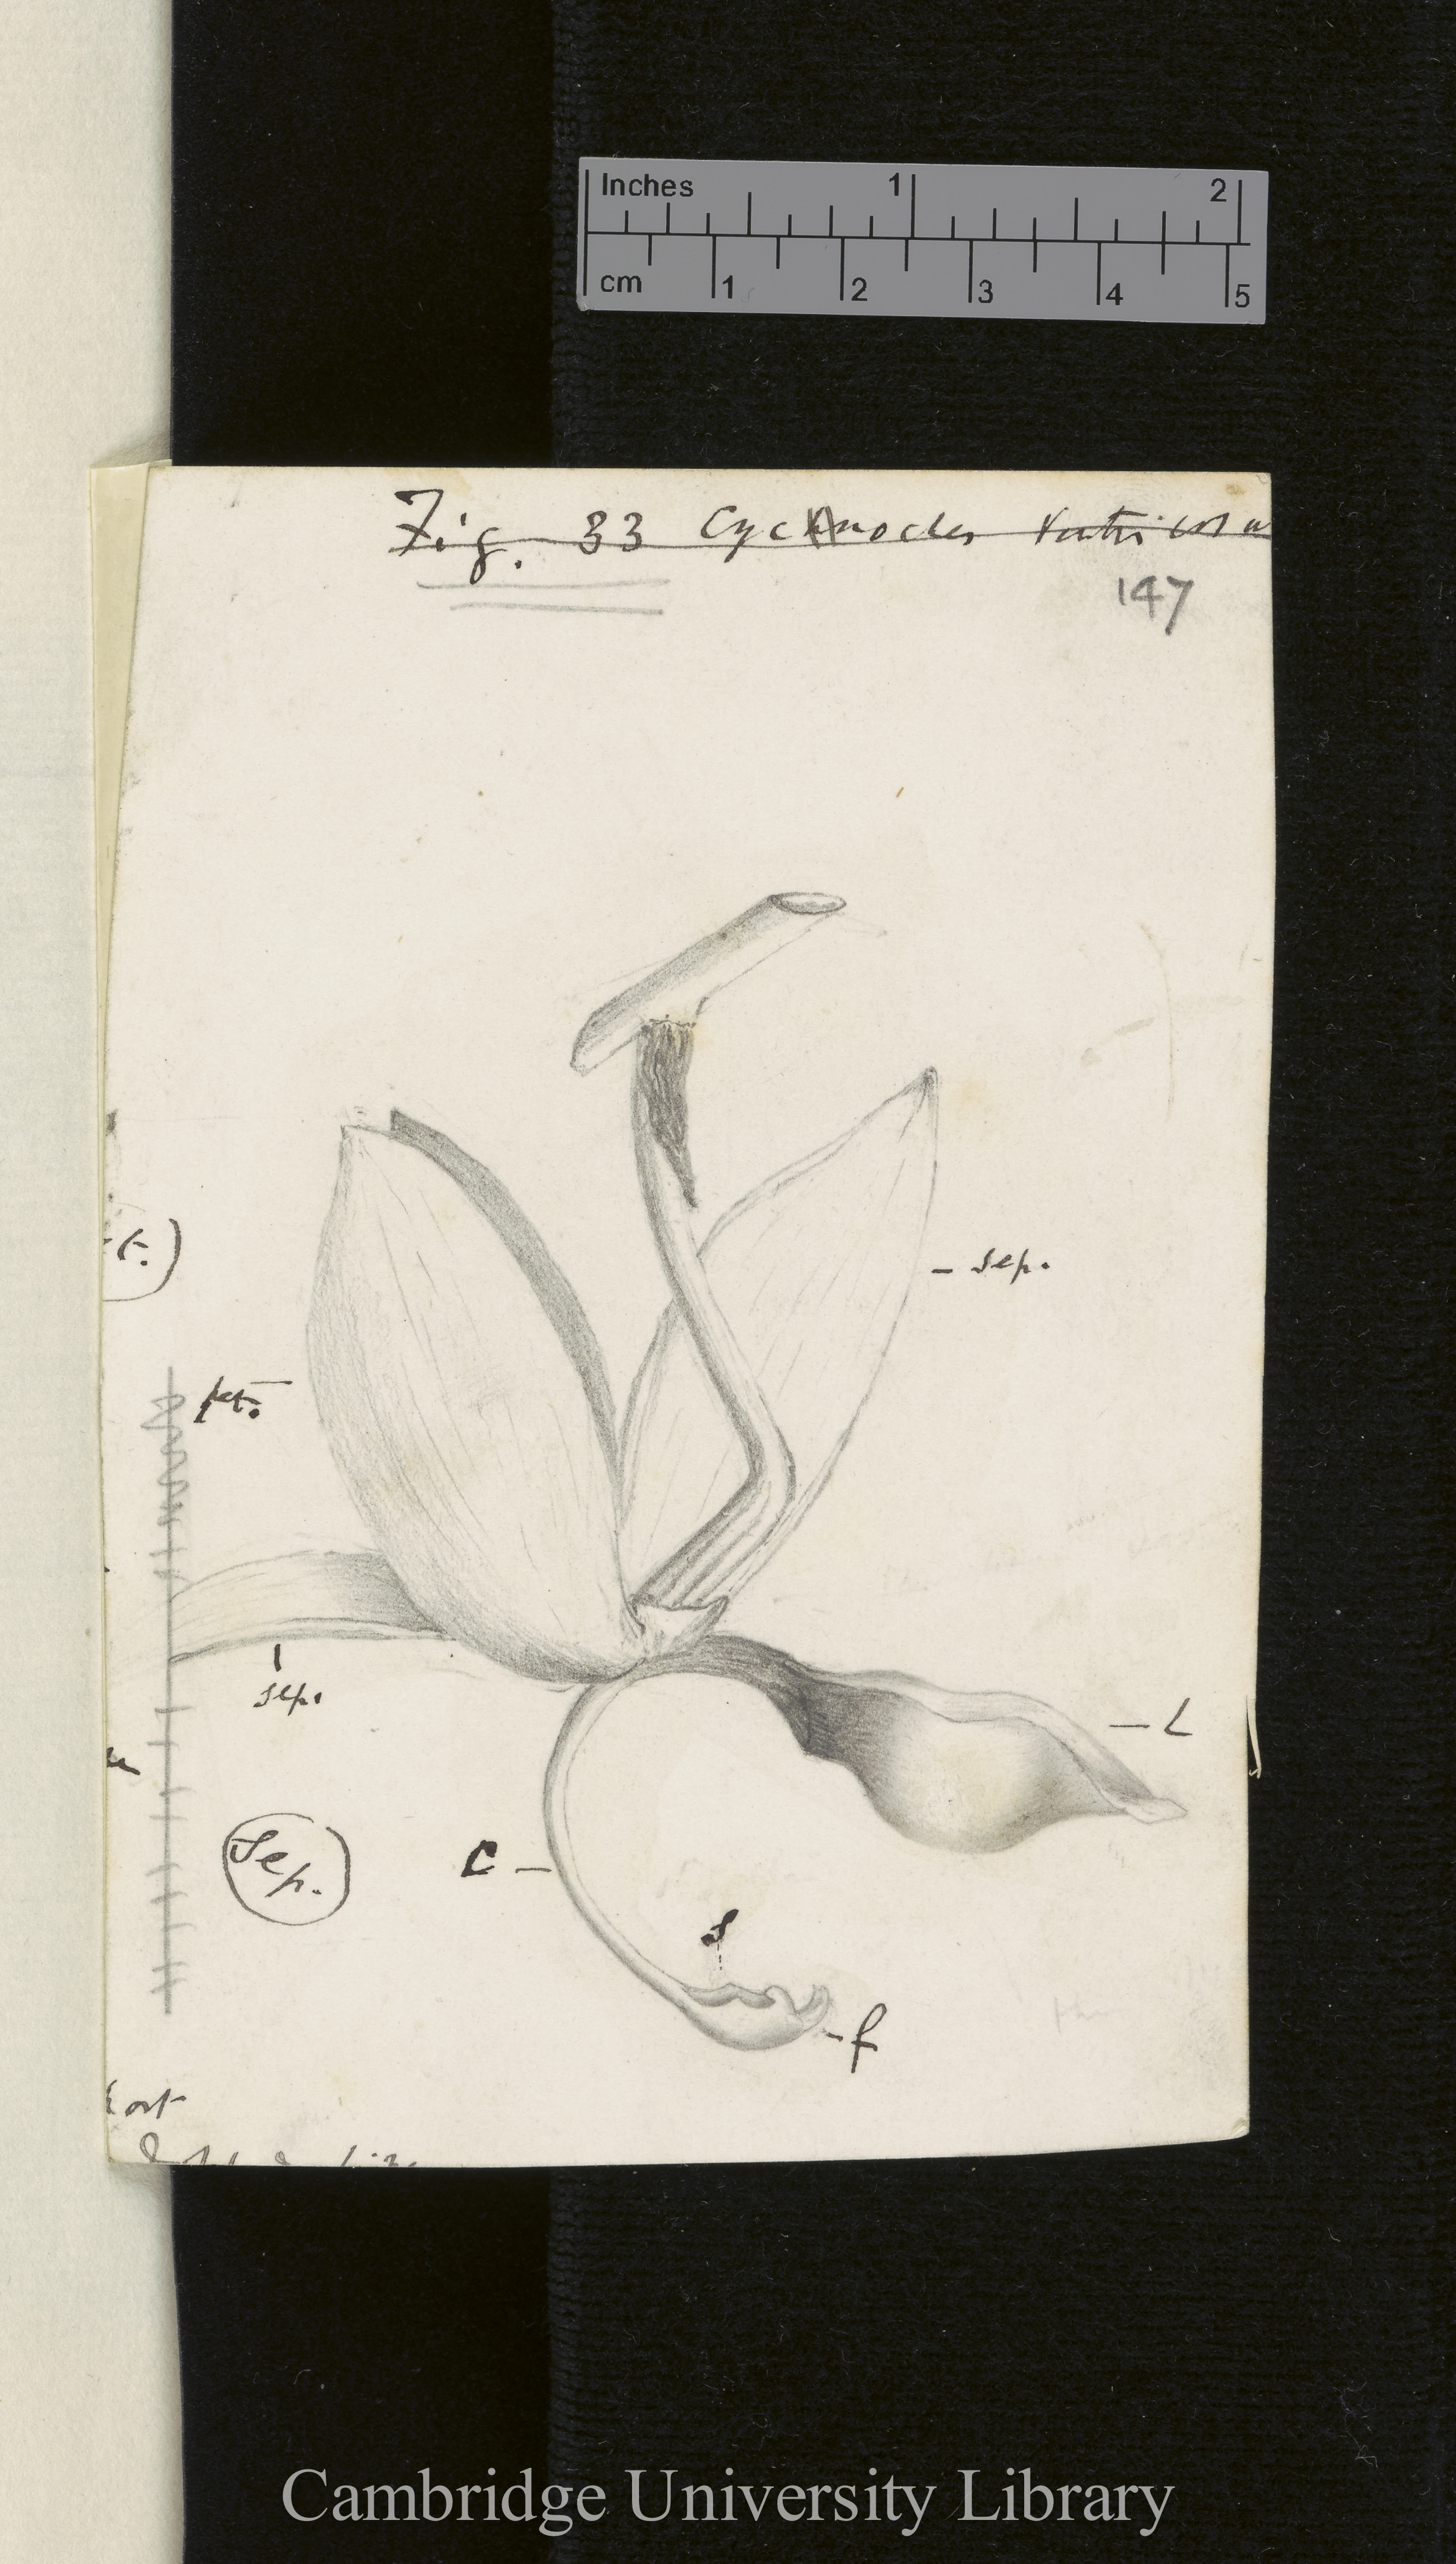 Inches 1 2
cm 1 2 3 4 5
Fig. 33 Cycnoches ventricosum
147
t.)
- sep.
pet.
sep.
- L
Sep.
C -
S
- f
Cambridge University Library